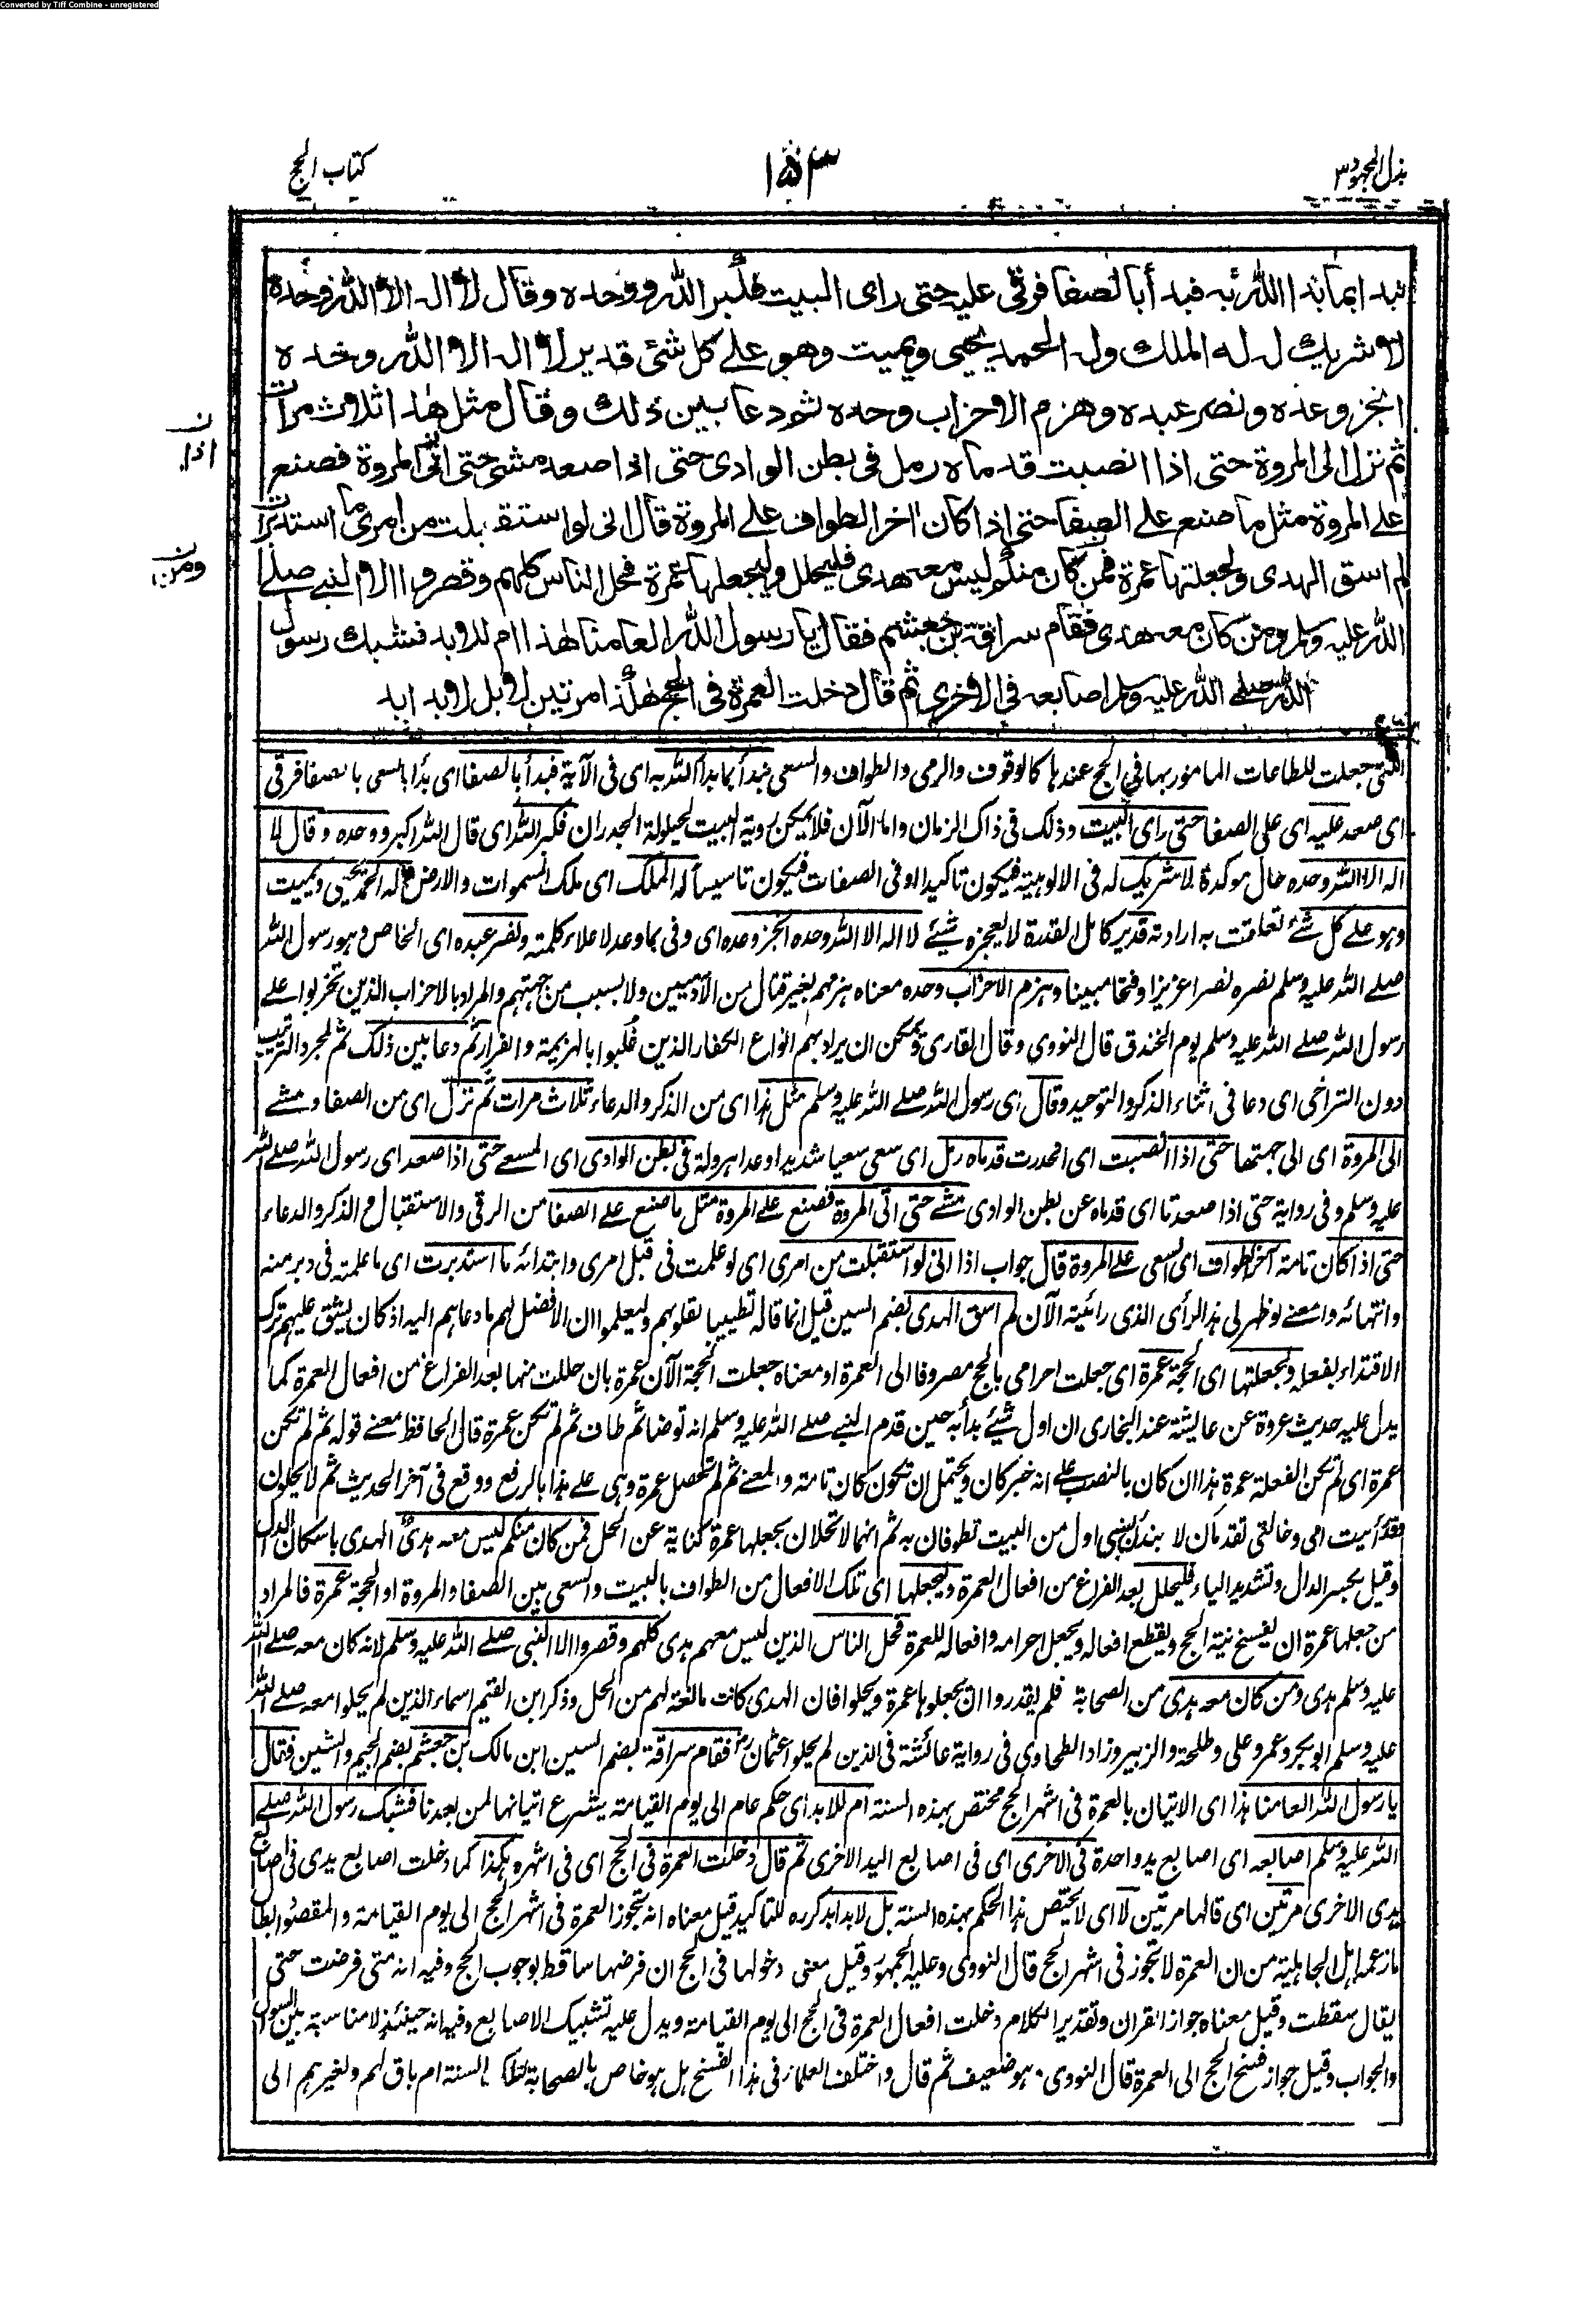 Converted by Tiff Combine - unregistered
بذل المجهود ٣
١٥٣
كتاب الحج
نبدأ بما بدأ الله به فبدأ بالصفا فرقى عليه حتى رأى البيت فكبر الله ووحده وقال لا اله الا الله وحده
لا شريك له له الملك وله الحمد يحيى ويميت وهو على كل شئ قدير لا اله الا الله وحده
انجز وعده ونصر عبده وهزم الاحزاب وحده ثم دعا بين ذلك وقال مثل هذا ثلاث مرات
ثم نزل الى المروة حتى اذا انصبت قدماه رمل فى بطن الوادى حتى اذا صعد مشى حتى اتى المروة فصنع
اذا ن
على المروة مثل ما صنع على الصفا حتى اذا كان اخر الطواف على المروة قال انى لو استقبلت من امرى ما استدبرت
لم اسق الهدى ولجعلتها عمرة فمن كان منكم ليس معه هدى فليحلل وليجعلها عمرة فحل الناس كلهم وقصروا الا النبى صلى
ومن ن
الله عليه وسلم ومن كان معه هدى فقام سراقة بن جعشم فقال يا رسول الله العامنا هذا ام للابد فشبك رسول
الله صلى الله عليه وسلم اصابعه فى الاخرى ثم قال دخلت العمرة فى الحج هكذا مرتين لا بل لابد ابد
التى جعلت للطاعات المامور بها فى الحج عندها كالوقوف والرمى والطواف والسعى نبدأ بما بدأ الله به اى فى الآية فبدأ بالصفا اى بدأ بالسعى بالصفا فرقى
اى صعد عليه اى على الصفا حتى راى البيت وذلك فى ذاك الزمان واما الآن فلا يمكن روية البيت لحيلولة الجدران فكبر الله اى قال الله اكبر ووحده وقال لا
اله الا الله وحده حال موكدة لا شريك له فى الالوهية فيكون تاكيدا او فى الصفات فيكون تاسيسا له الملك اى ملك السموات والارض وله الحمد يحيى ويميت
وهو على كل شئ تعلقت به ارادته قدير كامل القدرة لا يعجزه شئ لا اله الا الله وحده انجز وعده اى وفى بما وعد لاعلاء كلمته ونصر عبده اى الخاص وهو رسول الله
صلى الله عليه وسلم نصره نصرا عزيزا وفتحا مبينا وهزم الاحزاب وحده معناه هزمهم بغير قتال من الآدميين ولا بسبب من جهتهم والمراد بالاحزاب الذين تحزبوا على
رسول الله صلى الله عليه وسلم يوم الخندق قال النووى وقال القارى ويمكن ان يراد بهم انواع الكفار الذين غلبوا بالهزيمة والفرار ثم دعا بين ذلك ثم لمجرد الترتيب
دون التراخى اى دعا فى اثناء الذكر والتوحيد وقال اى رسول الله صلى الله عليه وسلم مثل هذا اى من الذكر والدعاء ثلاث مرات ثم نزل اى من الصفا ومشى
الى المروة اى الى جهتها حتى اذا انصبت اى انحدرت قدماه رمل اى سعى سعيا شديدا وعدا هرولة فى بطن الوادى اى المسعى حتى اذا صعد اى رسول الله صلى الله
عليه وسلم وفى رواية حتى اذا صعدتا اى قدماه عن بطن الوادى مشى حتى اتى المروة فصنع على المروة مثل ما صنع على الصفا من الرقى والاستقبال والذكر والدعاء
حتى اذا كان تامة آخر الطواف اى السعى على المروة قال جواب اذا انى لو استقبلت من امرى اى لو علمت فى قبل امرى وابتدائه ما استدبرت اى ما علمته فى دبر منه
وانتهائه والمعنى لو ظهر لى هذا الرأى الذى رائيته الآن لم اسق الهدى بضم السين قيل انما قاله تطييبا لقلوبهم وليعلموا ان الافضل لهم ما دعاهم اليه اذ كان يشق عليهم ترك
الاقتداء بفعله ولجعلتها اى الحجة عمرة اى جعلت احرامى بالحج مصروفا الى العمرة او معناه جعلت الحجة الآن عمرة بان حللت منها بعد الفراغ من افعال العمرة كما
يدل عليه حديث عروة عن عايشة عند البخارى ان اول شئ بدأ به حين قدم النبى صلى الله عليه وسلم انه توضا ثم طاف ثم لم تكن عمرة قال الحافظ معنى قوله ثم لم تكن
عمرة اى لم تكن الفعلة عمرة هذا ان كان بالنصب على انه خبر كان ويحتمل ان تكون كان تامة والمعنى ثم لم تحصل عمرة وهى على هذا بالرفع ووقع فى آخر الحديث ثم لا يحلون
وقد رأيت امى وخالتى تقدمان لا تبتدأن بشئ اول من البيت تطوفان به ثم انهما لا تحلان يجعلها عمرة كناية عن الحل فمن كان منكم ليس معه هدى الهدى باسكان الدال
وقيل بكسر الدال وتشديد الياء فليحلل بعد الفراغ من افعال العمرة وليجعلها اى تلك الافعال من الطواف بالبيت والسعى بين الصفا والمروة او الحجة عمرة فالمراد
من جعلها عمرة ان يفسخ نية الحج ويقطع افعاله ويجعل احرامه وافعاله للعمرة فحل الناس الذين ليس معهم هدى كلهم وقصروا الا النبى صلى الله عليه وسلم لانه كان معه صلى الله
عليه وسلم هدى ومن كان معه هدى من الصحابة فلم يقدروا ان يجعلوها عمرة ويحلوا فان الهدى كانت مانعة لهم من الحل وذكر ابن القيم اسماء الذين لم يحلوا معه صلى الله
عليه وسلم ابو بكر وعمر وعلى وطلحة والزبير وزاد الطحاوى فى رواية عائشة فى الذين لم يحلوا عثمان رض فقام سراقة بضم السين ابن مالك بن جعشم بضم الجيم والشين فقال
يا رسول الله العامنا هذا اى الاتيان بالعمرة فى اشهر الحج مختص بهذه السنة ام للابد اى حكم عام الى يوم القيامة يشرع اتيانها لمن بعدنا فشبك رسول الله صلى
الله عليه وسلم اصابعه اى اصابع يد واحدة فى الاخرى اى فى اصابع اليد الاخرى ثم قال دخلت العمرة فى الحج اى فى اشهره هكذا كما دخلت اصابع يدى فى اصابع
يدى الاخرى مرتين اى قالها مرتين لا اى لا يختص هذا الحكم بهذه السنة بل لابد ابد كرره للتاكيد قيل معناه انه تجوز العمرة فى اشهر الحج الى يوم القيامة والمقصود ابطال
ما زعمه اهل الجاهلية من ان العمرة لا تجوز فى اشهر الحج قال النووى وعليه الجمهور وقيل معنى دخولها فى الحج ان فرضها ساقط بوجوب الحج وفيه انه متى فرضت حتى
يقال سقطت وقيل معناه جواز القران وتقدير الكلام دخلت افعال العمرة فى الحج الى يوم القيامة ويدل عليه تشبيك الاصابع وفيه انه حينئذ لا مناسبة بين السوال
والجواب وقيل جواز فسخ الحج الى العمرة قال النووى هو ضعيف ثم قال واختلف العلماء فى هذا الفسخ هل هو خاص بالصحابة لتلك السنة ام باق لهم ولغيرهم الى